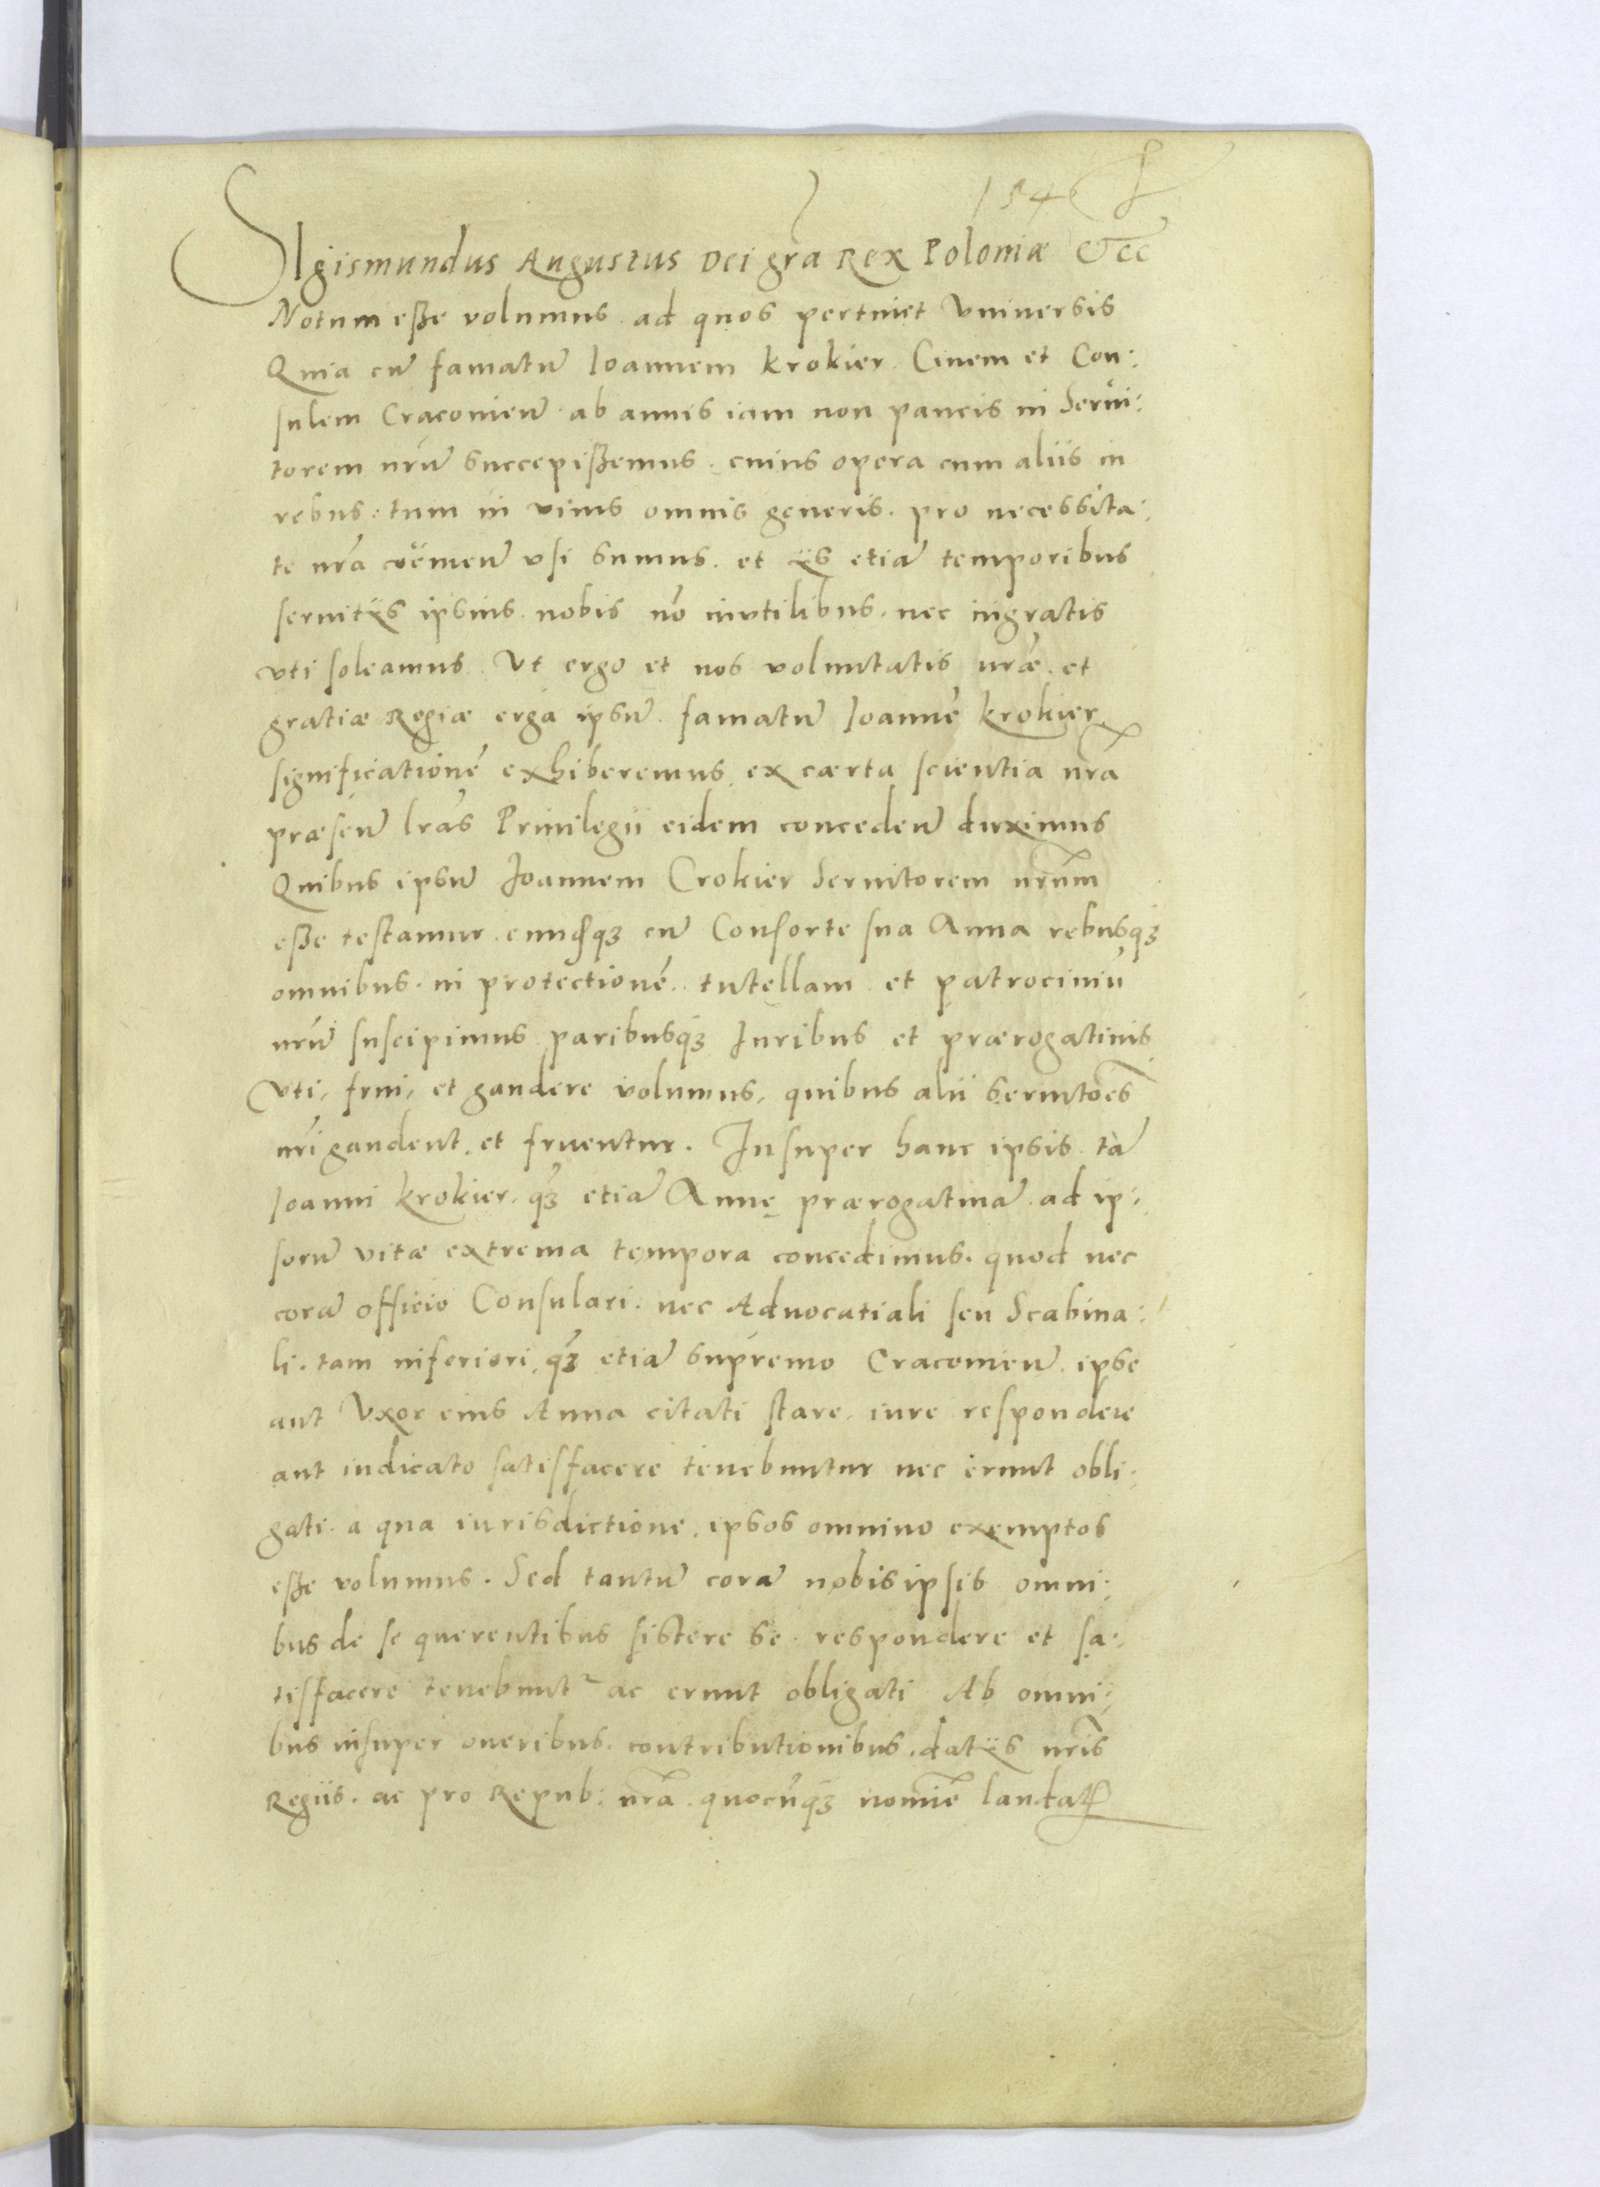 1546
SIgismundus Augustus Dei gr̃a Rex Poloniæ &cc
Notum eße volumus ad quos pertinet Vniuersis
Quia cũ famatũ Ioannem Krokier Ciuem et Con:
sulem Cracouieñ ab annis iam non paucis in Serui:
torem nr̃ũ succepißemus. cuius opera cum aliis in
rebus. tum in vinis omnis generis. pro necessita:
te nr̃a coëmeñ vsi sumus. et iis etiã temporibus
seruitiis ipsius nobis nõ invtilibus. nec ingratis
vti soleamus. Vt ergo et nos voluntatis nr̃æ. et
gratiæ Regiæ erga ipsũ famatũ Ioannẽ Krokier
significationẽ exhiberemus ex cærta scientia nr̃a
præseñ lr̃as Priuilegii eidem concedeñ duximus
Quibus ipsũ Joannem Crokier Seruitorem nr̃um
eße testamur eundẽq₃ cũ Consorte sua Anna rebusq₃
omnibus. in protectionẽ. tutellam et patrociniũ
nr̃ũ suscipimus paribusq₃ Iuribus et prærogatiuis
vti, frui, et gaudere volumus, quibus alii seruitoẽs
nr̃i gaudent. et fruentur. Insuper hanc ipsis tã
Ioanni Krokier. q₃ etiã Annę prærogatiuã ad ip:
sorũ vitæ extrema tempora concedimus. quod nec
corã officio Consulari. nec Aduocatiali seu Scabina:
li. tam inferiori q₃ etiã supremo Cracouieñ ipse
aut Vxor eius Anna citati stare. iure respondere
aut iudicato satisfacere tenebuntur nec erunt obli:
gati. a qua iurisdictione. ipsos omnino exemptos
eße volumus. Sed tantũ corã nobis ipsis omni:
bus de se querentibus sistere se. respondere et sa:
tisfacere tenebunt² ac erunt obligati Ab omni:
bus insuper oneribus. contributionibus. datiis nr̃is
Regiis. ac pro Repub: nr̃a. quocũq₃ nomiẽ laudatꝝ